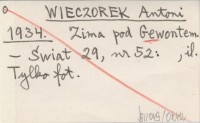 WIECZOREK Antoni
1934. Zima pod Gewontem
– Świat 29, nr 52: , il.
Tylko fot.